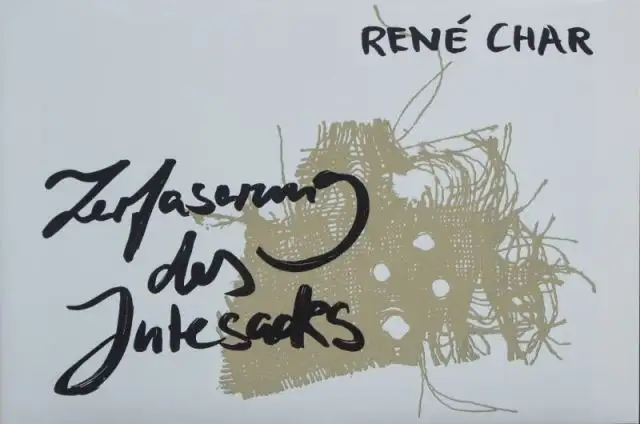 RENÉ CHAR
Zerfaserung
des
Jutesacks